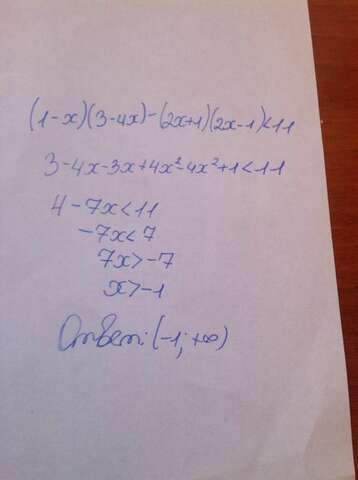 (1-x)(3-4x)-(2x+1)(2x-1)<11
3-4x-3x+4x²-4x²+1<11
4-7x<11
-7x<7
7x>-7
x>-1
Ответ: (-1; +∞)